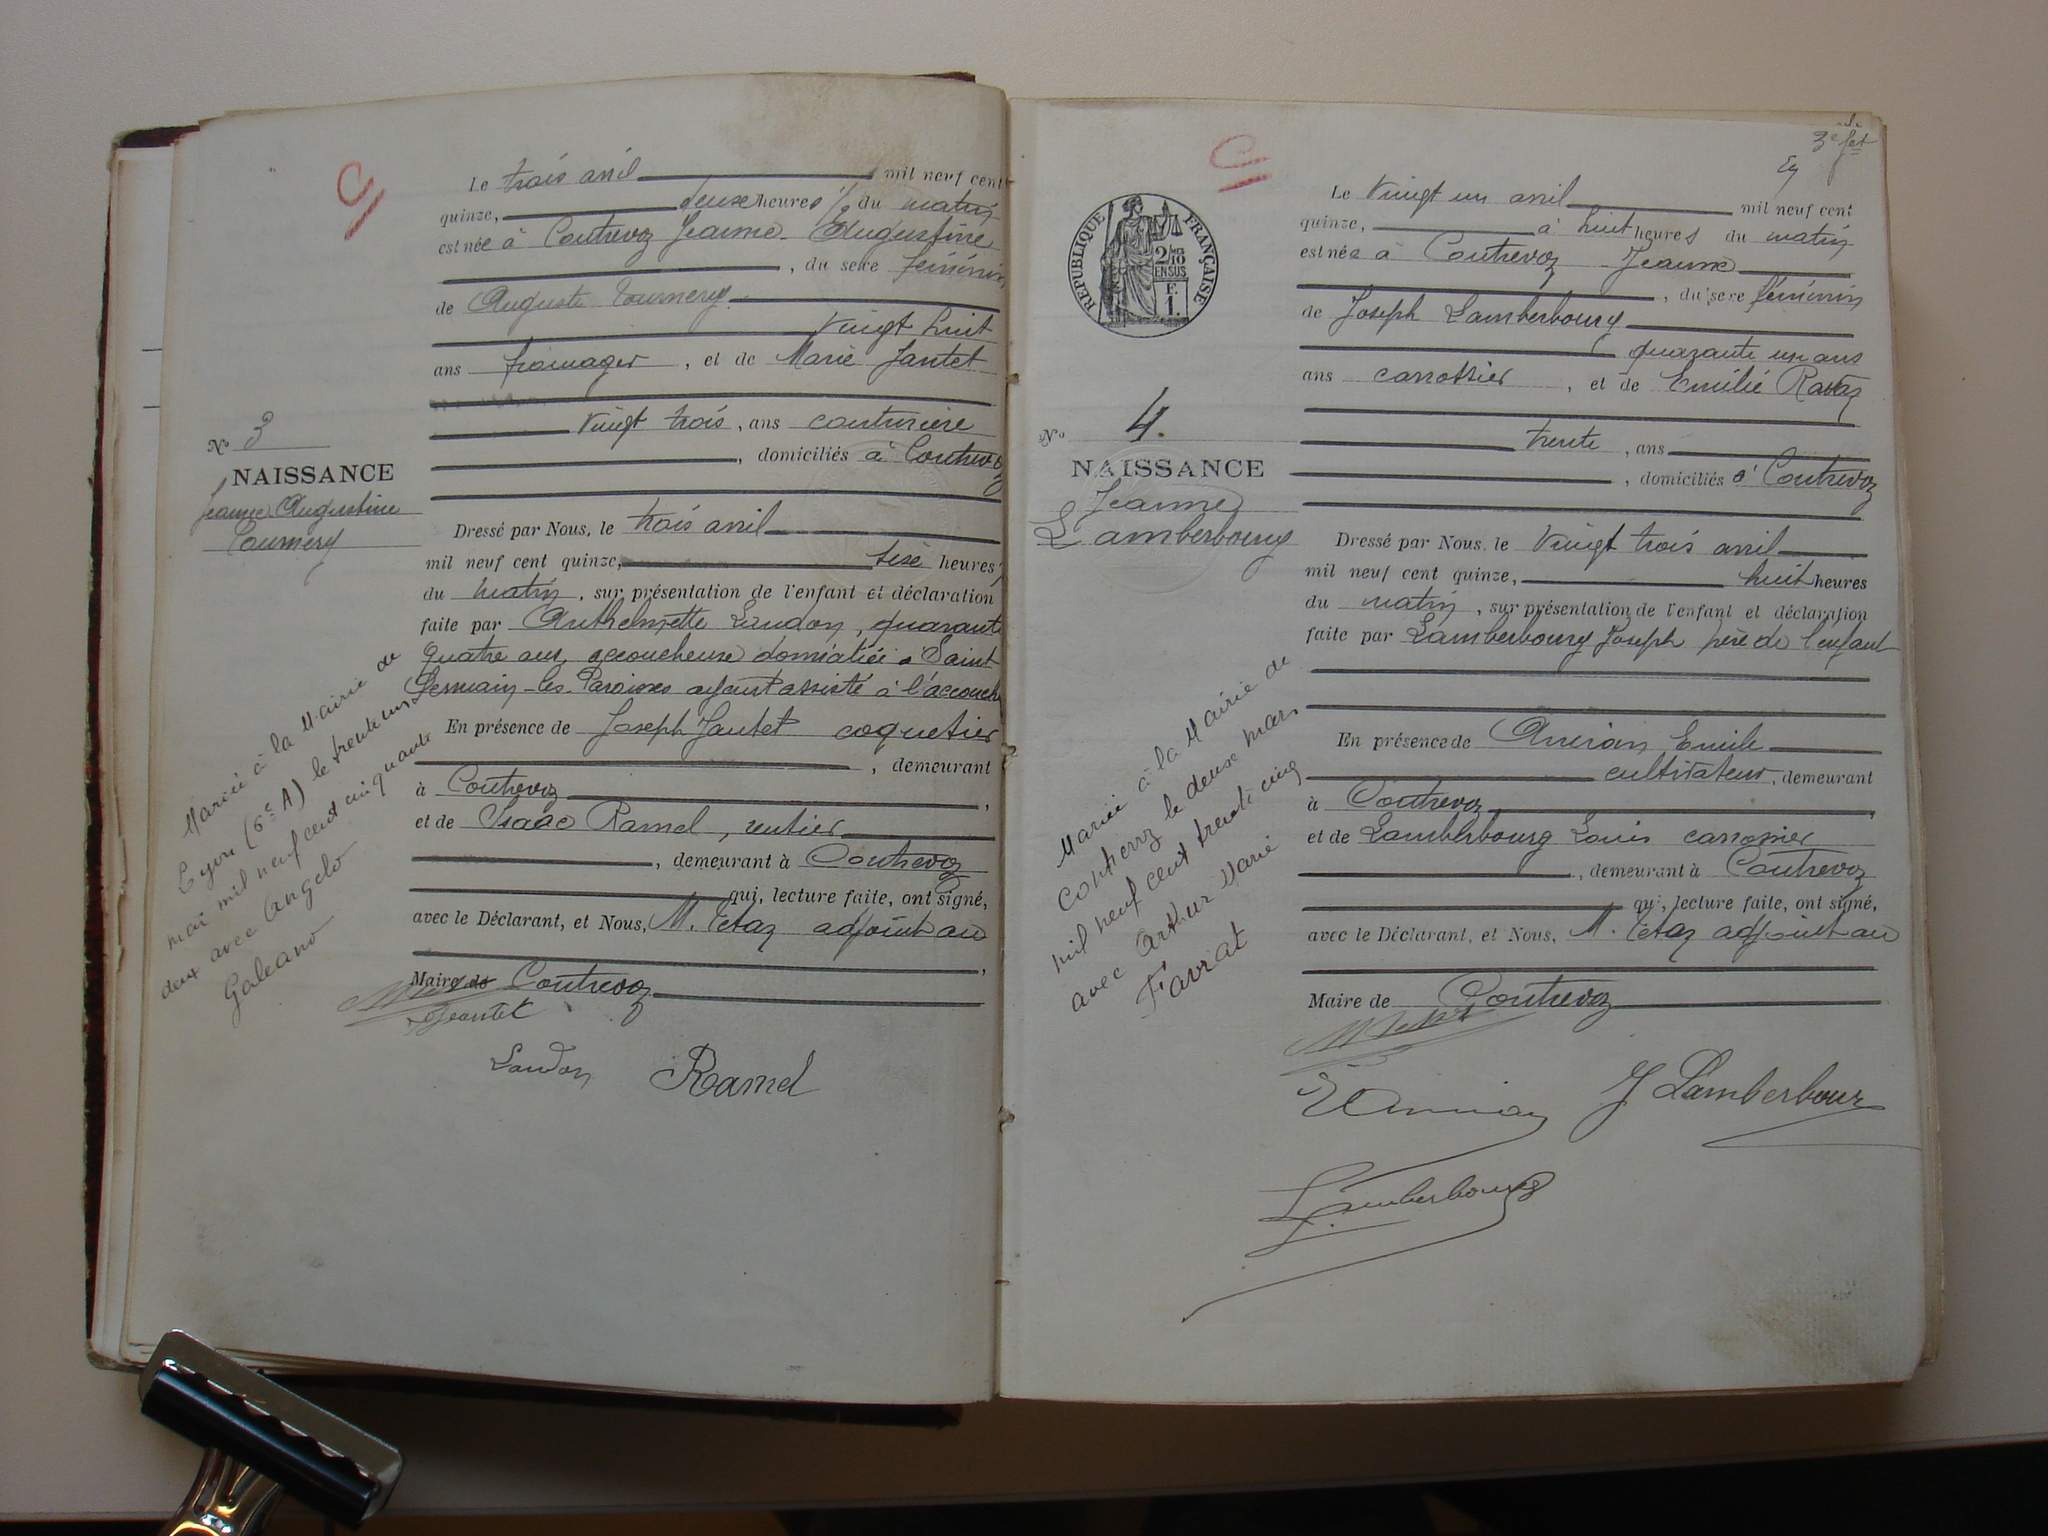 Le trois avril mil neuf cent
quinze, deux heures ½ du matin
est née à Contrevoz Jeanne Augustine
, du sexe féminin
de Auguste Tournery
vingt huit
ans fromager, et de Marie Jantet
vingt trois, ans couturière
, domiciliés à Contrevoz
Nº 3
NAISSANCE
Jeanne Augustine
Tournery
Dressé par Nous, le trois avril
mil neuf cent quinze, heures
du matin, sur présentation de l'enfant et déclaration
faite par Anthelmette Landon, quarante
quatre ans, accoucheuse domiciliée à Saint
Germain-les-Paroisses ayant assisté à l'accouch
En présence de Joseph Jantet coquetier
, demeurant
à Contrevoz,
et de Isaac Ramel, rentier
, demeurant à Contrevoz
qui, lecture faite, ont signé,
avec le Déclarant, et Nous, M. Tétaz adjoint au
,
Maire de Contrevoz
Jeantet
Landon Ramel
Mariée à la Mairie de
Lyon (6e A) le trente un
mai mil neuf cent cinquante
deux avec Angelo
Galeano
3e fet
REPUBLIQUE FRANÇAISE
2/10 EN SUS
F. 1.
Le vingt un avril mil neuf cent
quinze, à huit heures du matin
est née à Contrevoz Jeanne
, du sexe féminin
de Joseph Lamberbourg
quarante un ans
ans carrossier, et de Emilie Ravaz
trente, ans
, domiciliés à Contrevoz
Nº 4.
NAISSANCE
Jeanne
Lamberbourg
Dressé par Nous, le vingt trois avril
mil neuf cent quinze, huit heures
du matin, sur présentation de l'enfant et déclaration
faite par Lamberbourg Joseph père de l'enfant
En présence de Emile
cultivateur, demeurant
à Contrevoz
et de Lamberbourg Louis carrossier
, demeurant à Contrevoz
qui, lecture faite, ont signé,
avec le Déclarant, et Nous, M. Tétaz adjoint au
Maire de Contrevoz
J Lamberbourg
L. Lamberbourg
Mariée à la Mairie de
Contrevoz le deux mars
mil neuf cent trente cinq
avec Arthur Marie
Favrat